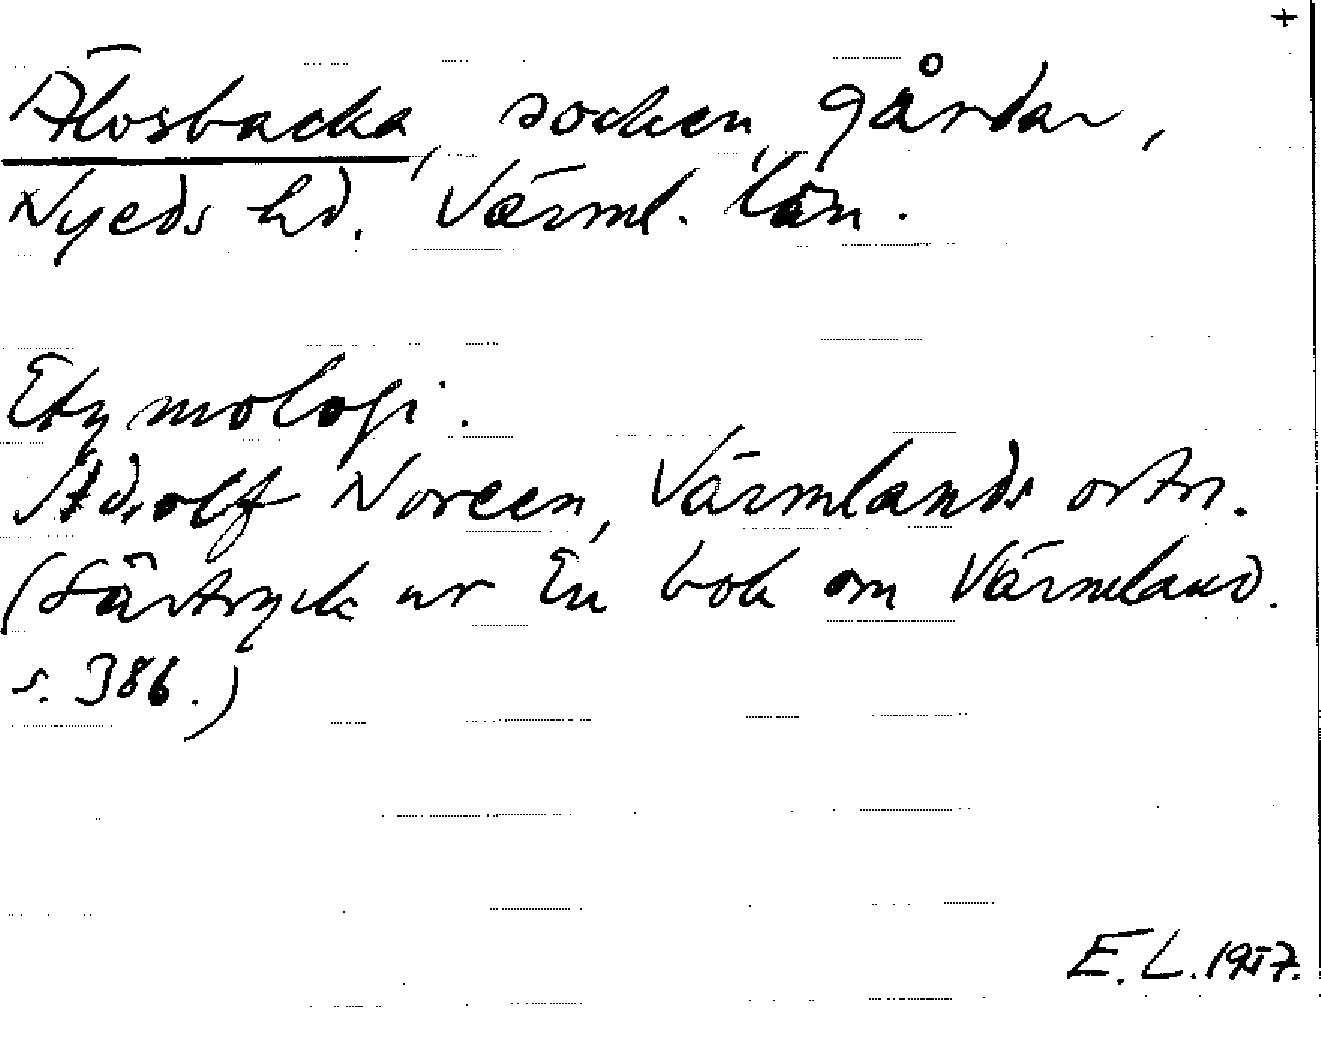 +
Älvsbacka, socken, gårdar,
Nyeds hd. Värml. län.
Etymologi.
Adolf Noreen, Värmlands ortn.
(Särtryck ur En bok om Värmland.
s. 386.)
E. L. 1957.